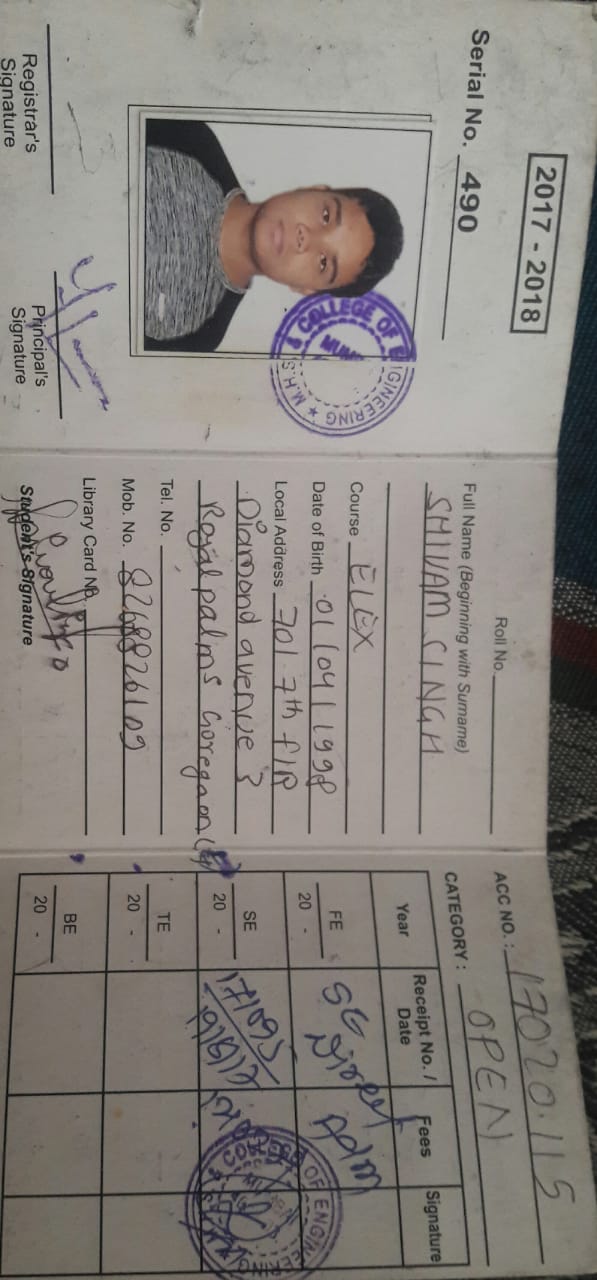 2017 - 2018
Serial No. 490
& COLLEGE OF ENGINEERING
M.H.S.
Registrar's Signature
Principal's Signature
Roll No.
Full Name (Beginning with Surname)
SHIVAM SINGH
Course ELEX
Date of Birth 01/04/1998
Local Address 701 7th flr
Diamond avenue 3
Royal palms Goregaon (E)
Tel. No.
Mob. No. 8268826109
Library Card No.
Student's Signature
ACC NO.: 17020115
CATEGORY: OPEN
Year Receipt No. / Date Fees Signature
FE 20 - SE Direct Adm
SE 20 - 171095
TE 20 -
BE 20 -